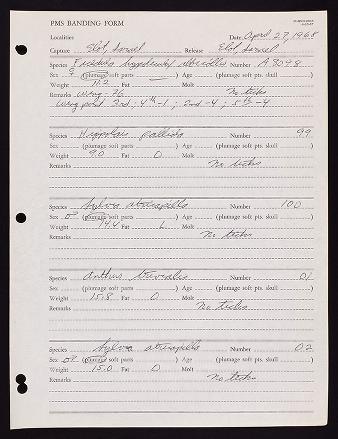 PMS BANDING FORM
Localities Date April 27, 1968
Capture Elat, Israel Release Elat, Israel
Species Number A 8098
Sex ♀ (plumage soft parts ) Age (plumage soft pts. skull )
Weight 11.2 Fat Molt
Remarks wing-76 No ticks
wing point 3rd; 4th-1; 2nd-4; 5th-4
Species Hippolais pallida Number 99
Sex (plumage soft parts ) Age (plumage soft pts. skull )
Weight 9.0 Fat 0 Molt
Remarks No ticks
Species Sylvia atricapilla Number 100
Sex ♂ (plumage soft parts ) Age (plumage soft pts. skull )
Weight 14.4 Fat L Molt
Remarks No ticks
Species Anthus trivialis Number 01
Sex (plumage soft parts ) Age (plumage soft pts. skull )
Weight 15.8 Fat 0 Molt
Remarks No ticks
Species Sylvia atricapilla Number 02
Sex ♂ (plumage soft parts ) Age (plumage soft pts. skull )
Weight 15.0 Fat 0 Molt
Remarks No ticks